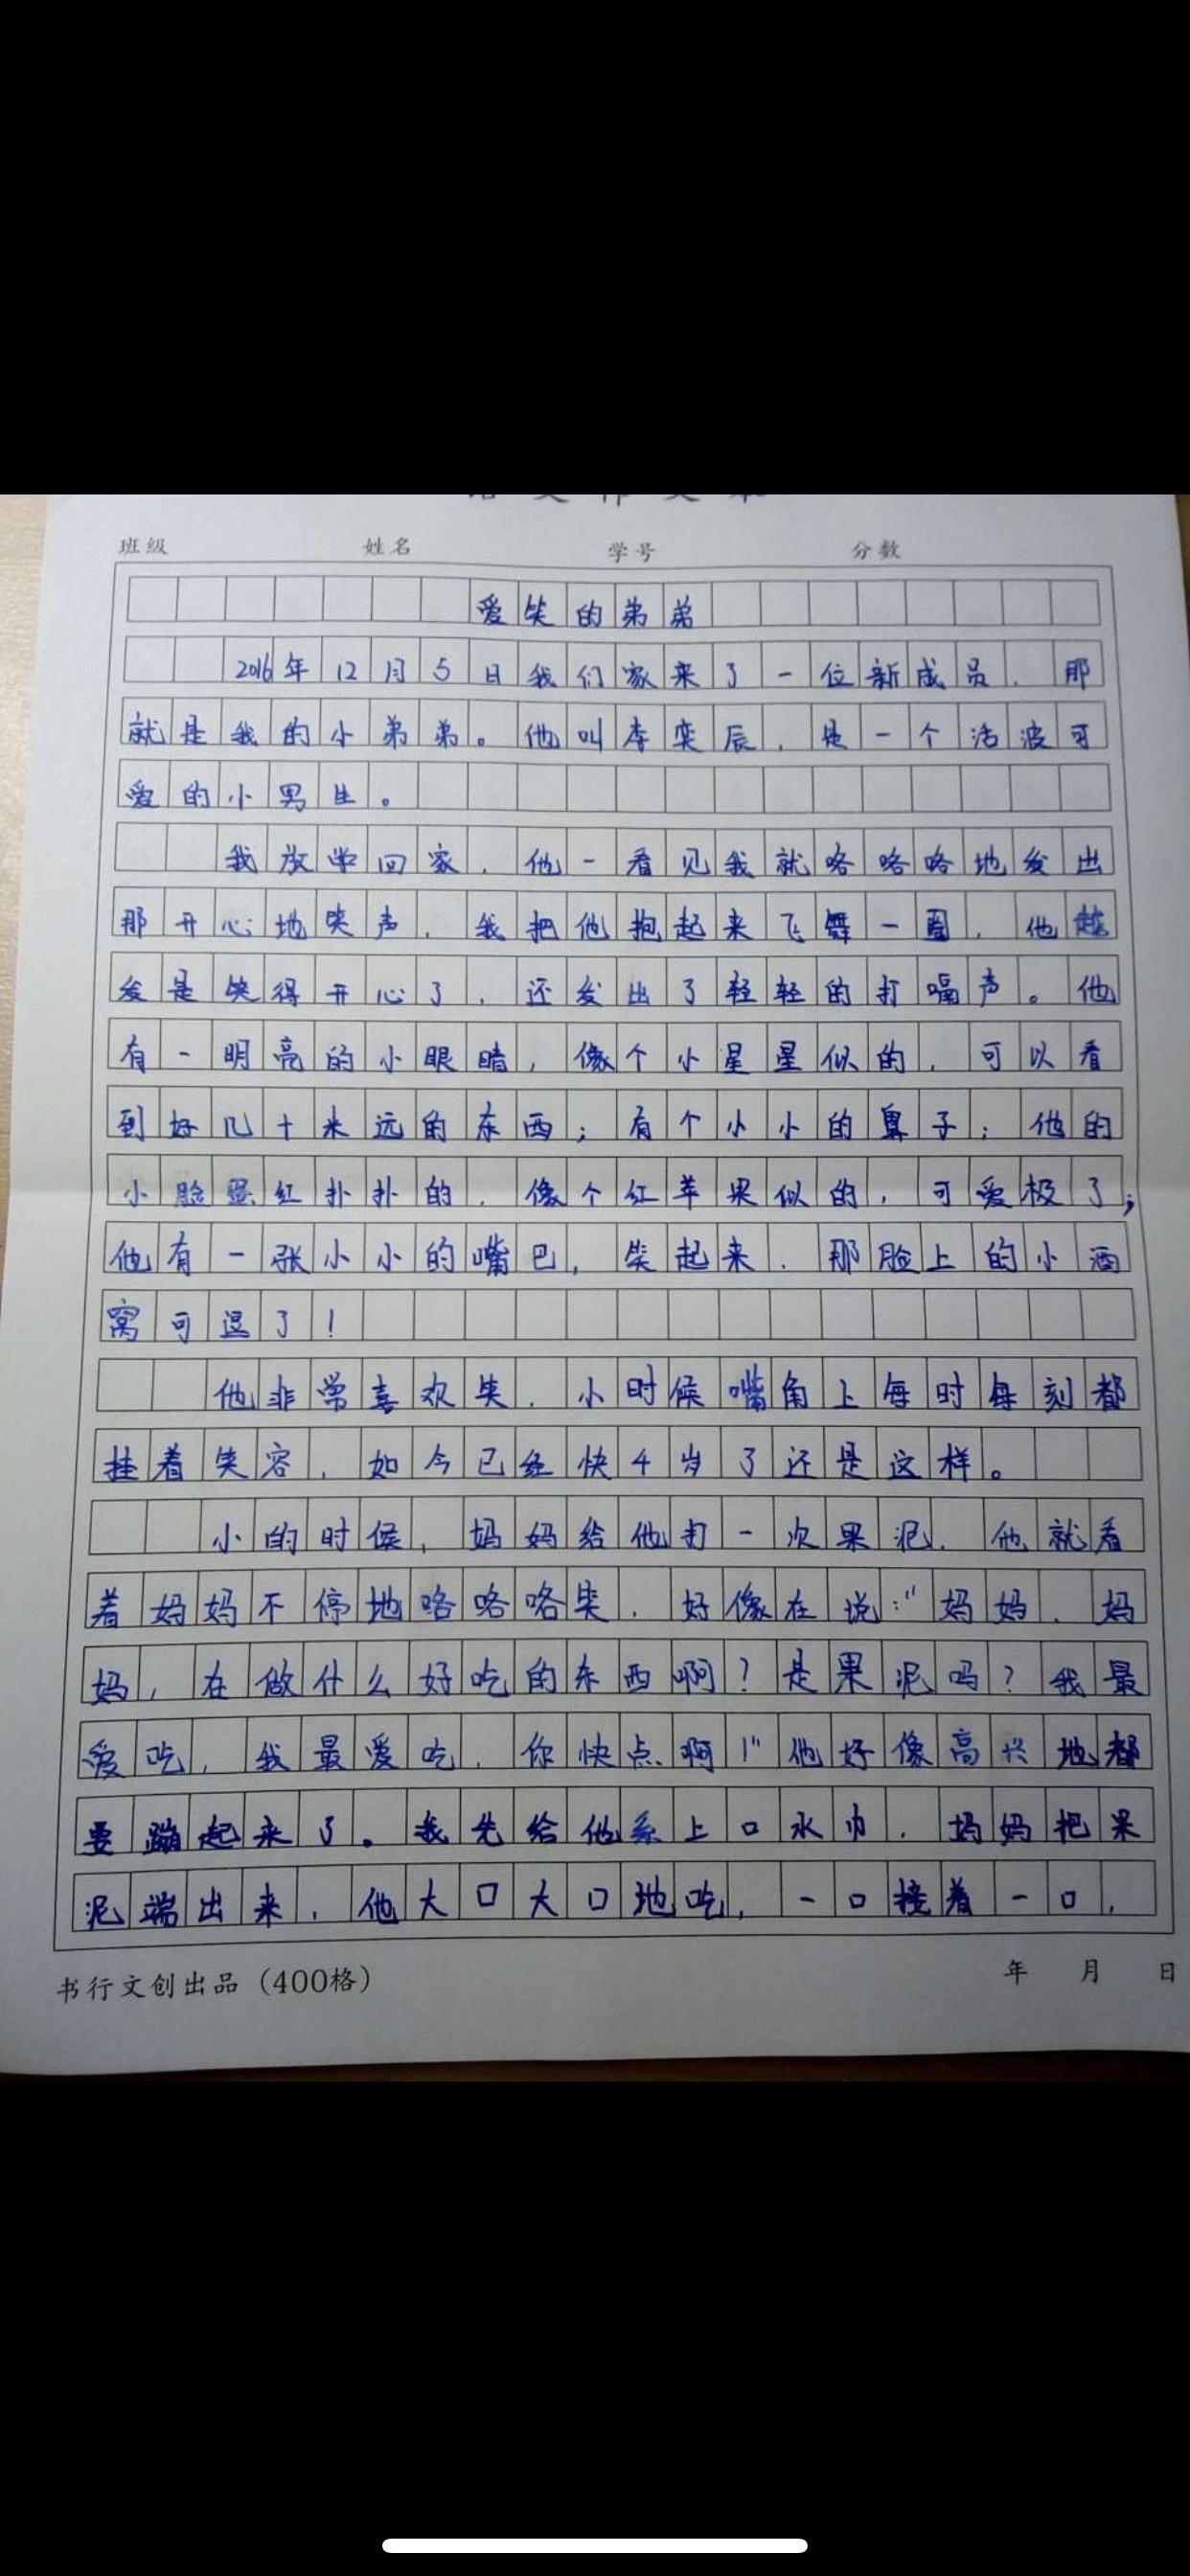 语文作文本
班级 姓名 学号 分数
爱笑的弟弟
2016年12月5日我们家来了一位新成员，那
就是我的小弟弟。他叫李奕辰，是一个活波可
爱的小男生。
我放学回家，他一看见我就咯咯咯地发出
那开心地笑声，我把他抱起来飞舞一圈，他越
发是笑得开心了，还发出了轻轻的打嗝声。他
有一明亮的小眼睛，像个小星星似的，可以看
到好几十米远的东西；有个小小的鼻子；他的
小脸蛋红扑扑的，像个红苹果似的，可爱极了；
他有一张小小的嘴巴，笑起来，那脸上的小酒
窝可逗了！
他非常喜欢笑，小时候嘴角上每时每刻都
挂着笑容，如今已经快4岁了还是这样。
小的时候，妈妈给他打一次果泥，他就看
着妈妈不停地咯咯咯笑，好像在说：“妈妈，妈
妈，在做什么好吃的东西啊？是果泥吗？我最
爱吃，我最爱吃，你快点啊！”他好像高兴地都
要蹦起来了。我先给他系上口水巾，妈妈把果
泥端出来，他大口大口地吃，一口接着一口，
书行文创出品（400格） 年 月 日